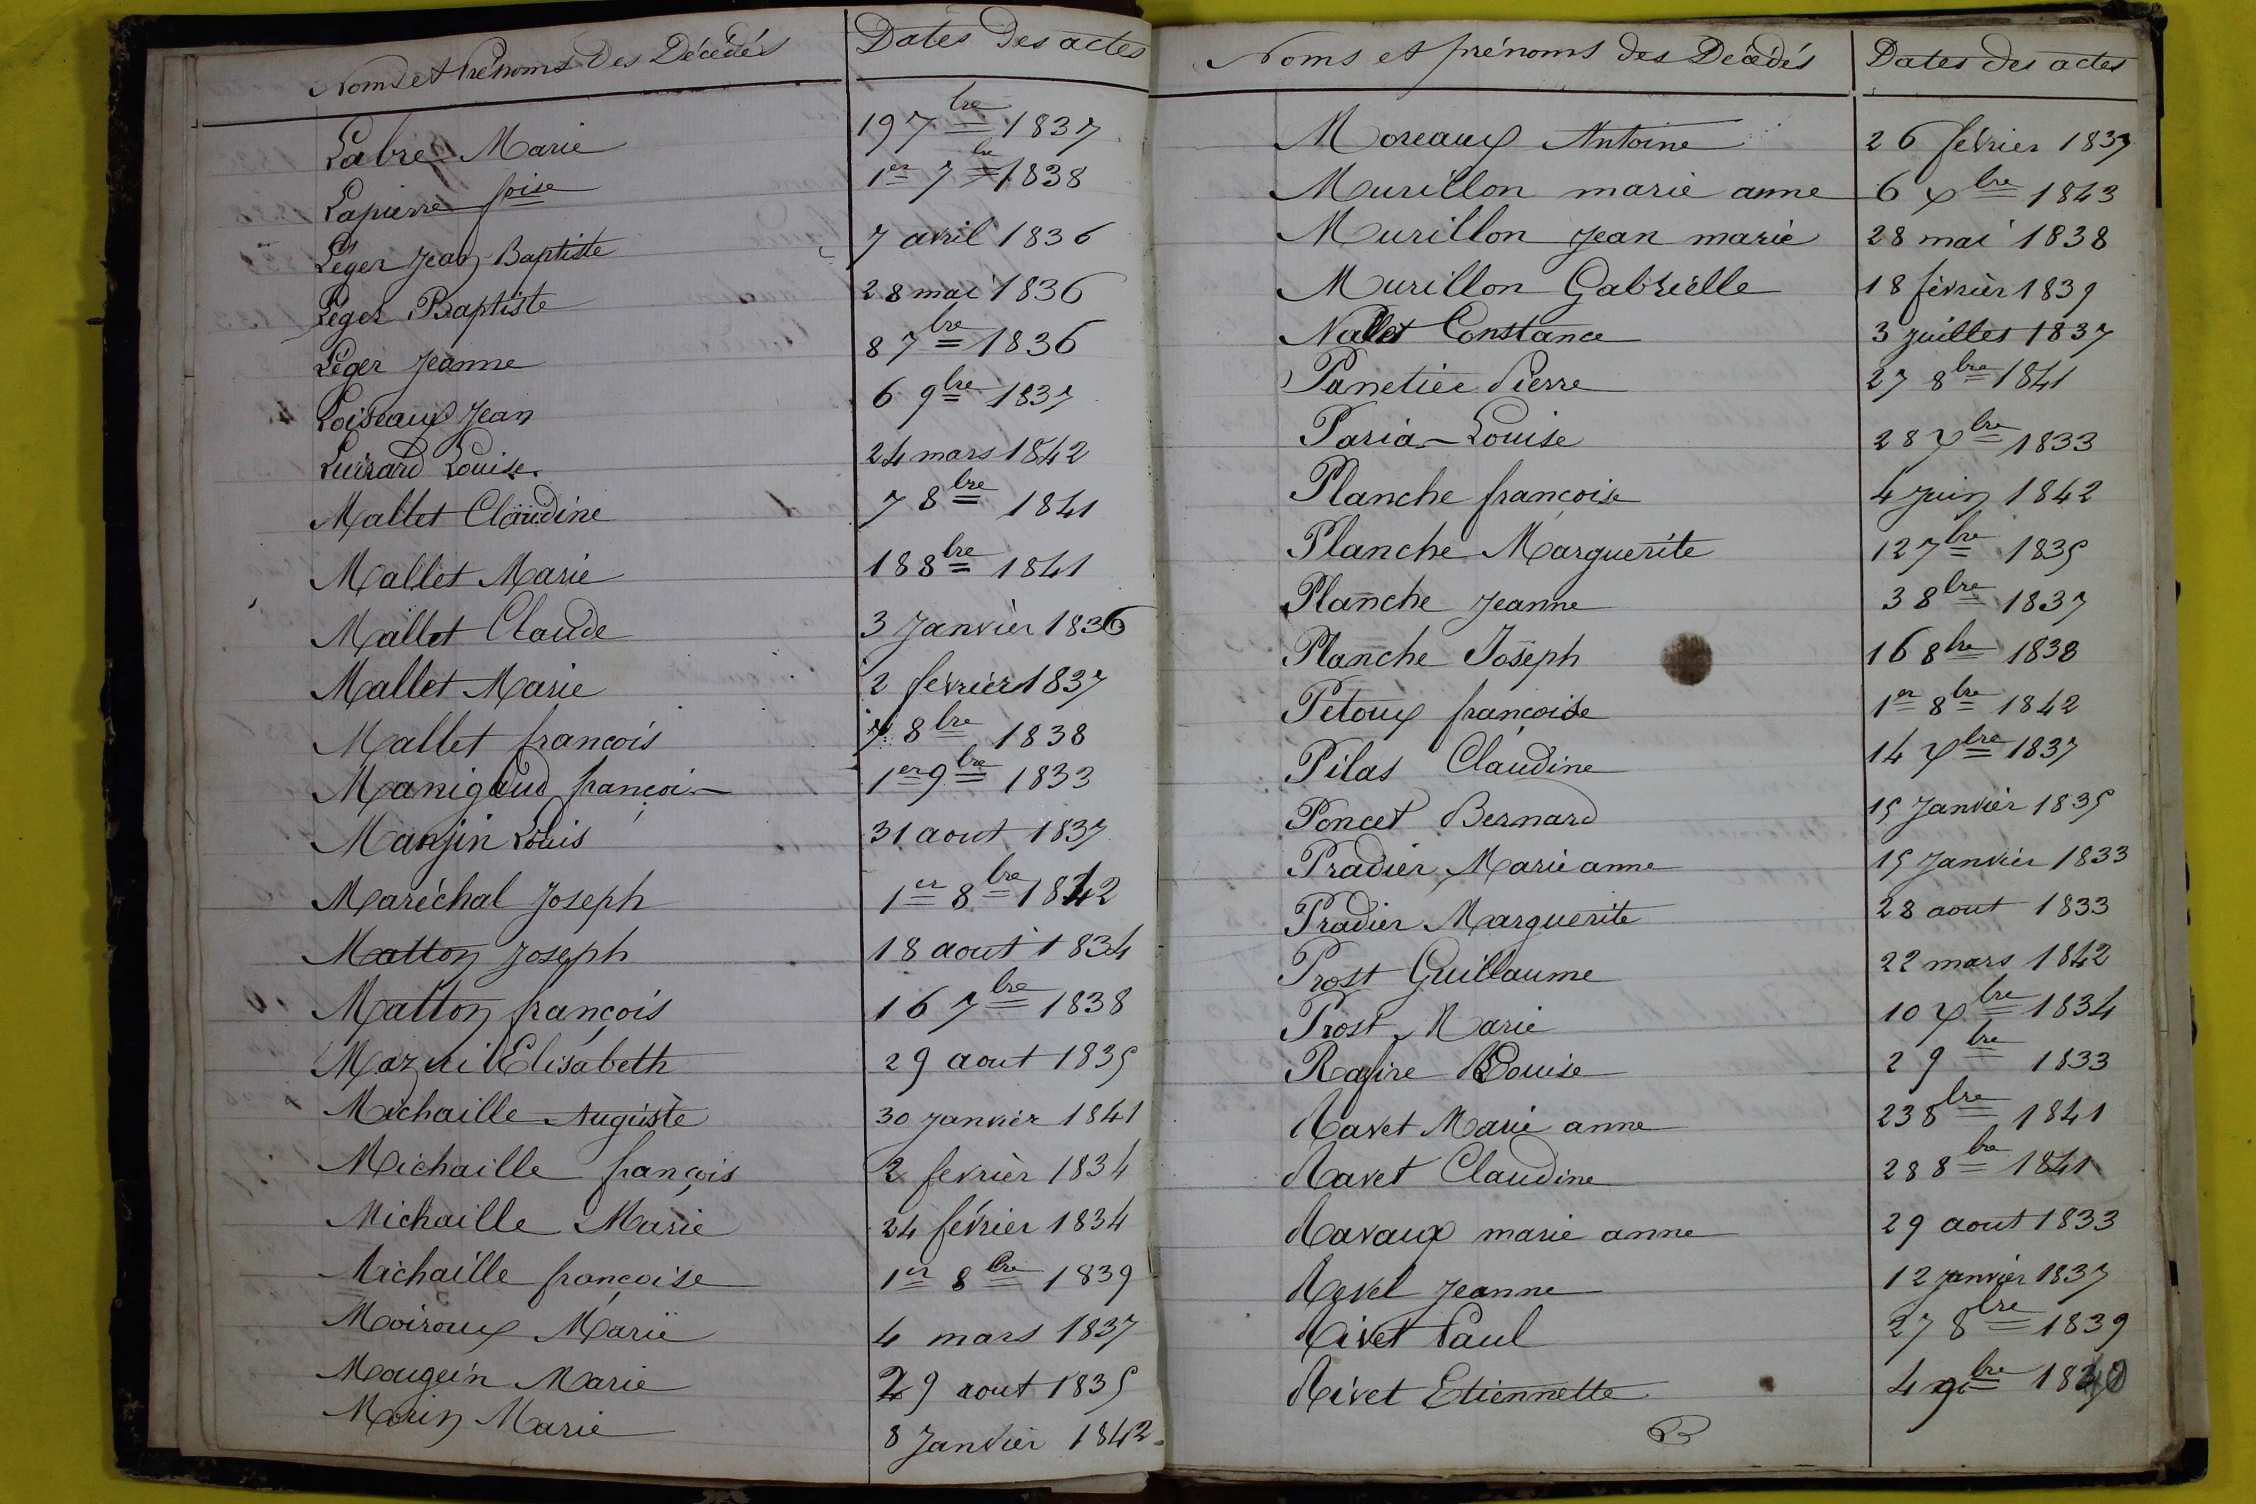 Noms et Prénoms Des Décédés Dates Des actes
Labre Marie 19 7bre 1837
Lapierre foise 1er 7bre 1838
Léger Jean Baptiste 7 avril 1836
Léger Baptiste 28 mai 1836
Léger Jeanne 8 7bre 1836
Loiseaux Jean 6 9bre 1837
Luirard Louise 24 mars 1842
Mallet Claudine 7 8bre 1841
Mallet Marie 18 8bre 1841
Mallet Claude 3 Janvier 1836
Mallet Marie 2 fevrier 1837
Mallet françois 7 8bre 1838
Manigaud françoi 1er 9bre 1833
Manjin Louis 31 aout 1837
Maréchal Joseph 1er 8bre 1842
Matton Joseph 18 aout 1834
Matton françois 16 7bre 1838
Mazuil Elisabeth 29 aout 1835
Michaille Auguste 30 Janvier 1841
Michaille françois 2 fevrier 1834
Michaille Marie 24 février 1834
Michaille françoise 1er 8bre 1839
Moiroux Marie 4 mars 1837
Mougein Marie 29 aout 1835
Morin Marie 8 Janvier 1842
Noms et prénoms des Décédés Dates des actes
Moreaux Antoine 26 février 1837
Murillon marie anne 6 Xbre 1843
Murillon Jean marie 28 mai 1838
Murillon Gabrielle 18 février 1839
Nallet Constance 3 juillet 1837
Panetier Pierre 27 8bre 1841
Paria Louise 28 Xbre 1833
Planche françoise 4 Juin 1842
Planche Marguerite 12 7bre 1835
Planche Jeanne 3 8bre 1837
Planche Joseph 16 8bre 1838
Petoux françoise 1er 8bre 1842
Pilas Claudine 14 Xbre 1837
Poncet Bernard 15 Janvier 1835
Pradier Marie anne 15 Janvier 1833
Pradier Marguerite 28 aout 1833
Prost Guillaume 22 mars 1842
Prost Marie 10 Xbre 1834
Rafire Louise 2 9bre 1833
Ravet Marie anne 23 8bre 1841
Ravet Claudine 28 8bre 1841
Ravaux marie anne 29 aout 1833
Revel Jeanne 12 janvier 1837
Rivet Paul 27 8bre 1839
Rivet Etiennette 4 9bre 1840